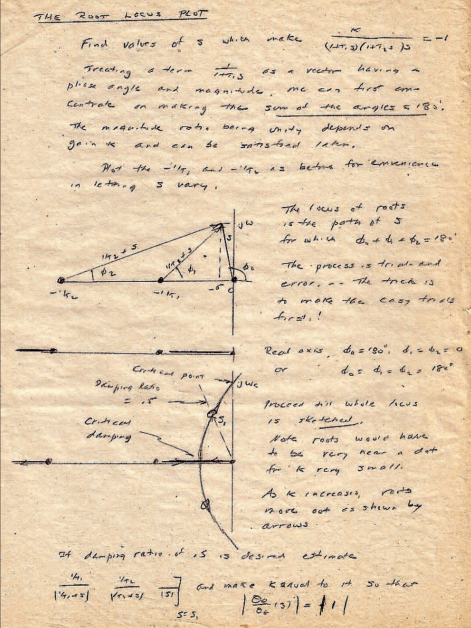 THE ROOT LOCUS PLOT
Find values of s which make K/((1+T₁s)(1+T₂s)s) = -1
Treating a term 1/(1+T₁s) as a vector having a
phase angle and magnitude, one can first con-
centrate on making the sum of the angles = 180°.
The magnitude ratio being unity depends on
gain K and can be satisfied later.
Plot the -1/T₁ and -1/T₂ as before for convenience
in letting s vary.
The locus of roots
is the path of s
for which φ₂ + φ₁ + φ₀ = 180°
The process is trial and
error. -- The trick is
to make the easy trials
first.!
jω
1/T₂ + s
1/T₁ + s
s
φ₂
φ₁
φ₀
-1/T₂
-1/T₁
-σ
0
Real axis, φ₀ = 180°, φ₁ = φ₂ = 0
or φ₀ = φ₁ = φ₂ = 180°
Critical point
jωc
Damping Ratio
= .5
S₁
Critical
damping
Proceed till whole locus
is sketched.
Note roots would have
to be very near a dot
for K very small.
As K increases, roots
move out as shown by
arrows
If damping ratio of .5 is desired estimate
1/T₁ / |1/T₁+s| 1/T₂ / |1/T₂+s| 1/|s|] and make K equal to it so that
s=s₁
|θ₀/θ (s)| = |1|